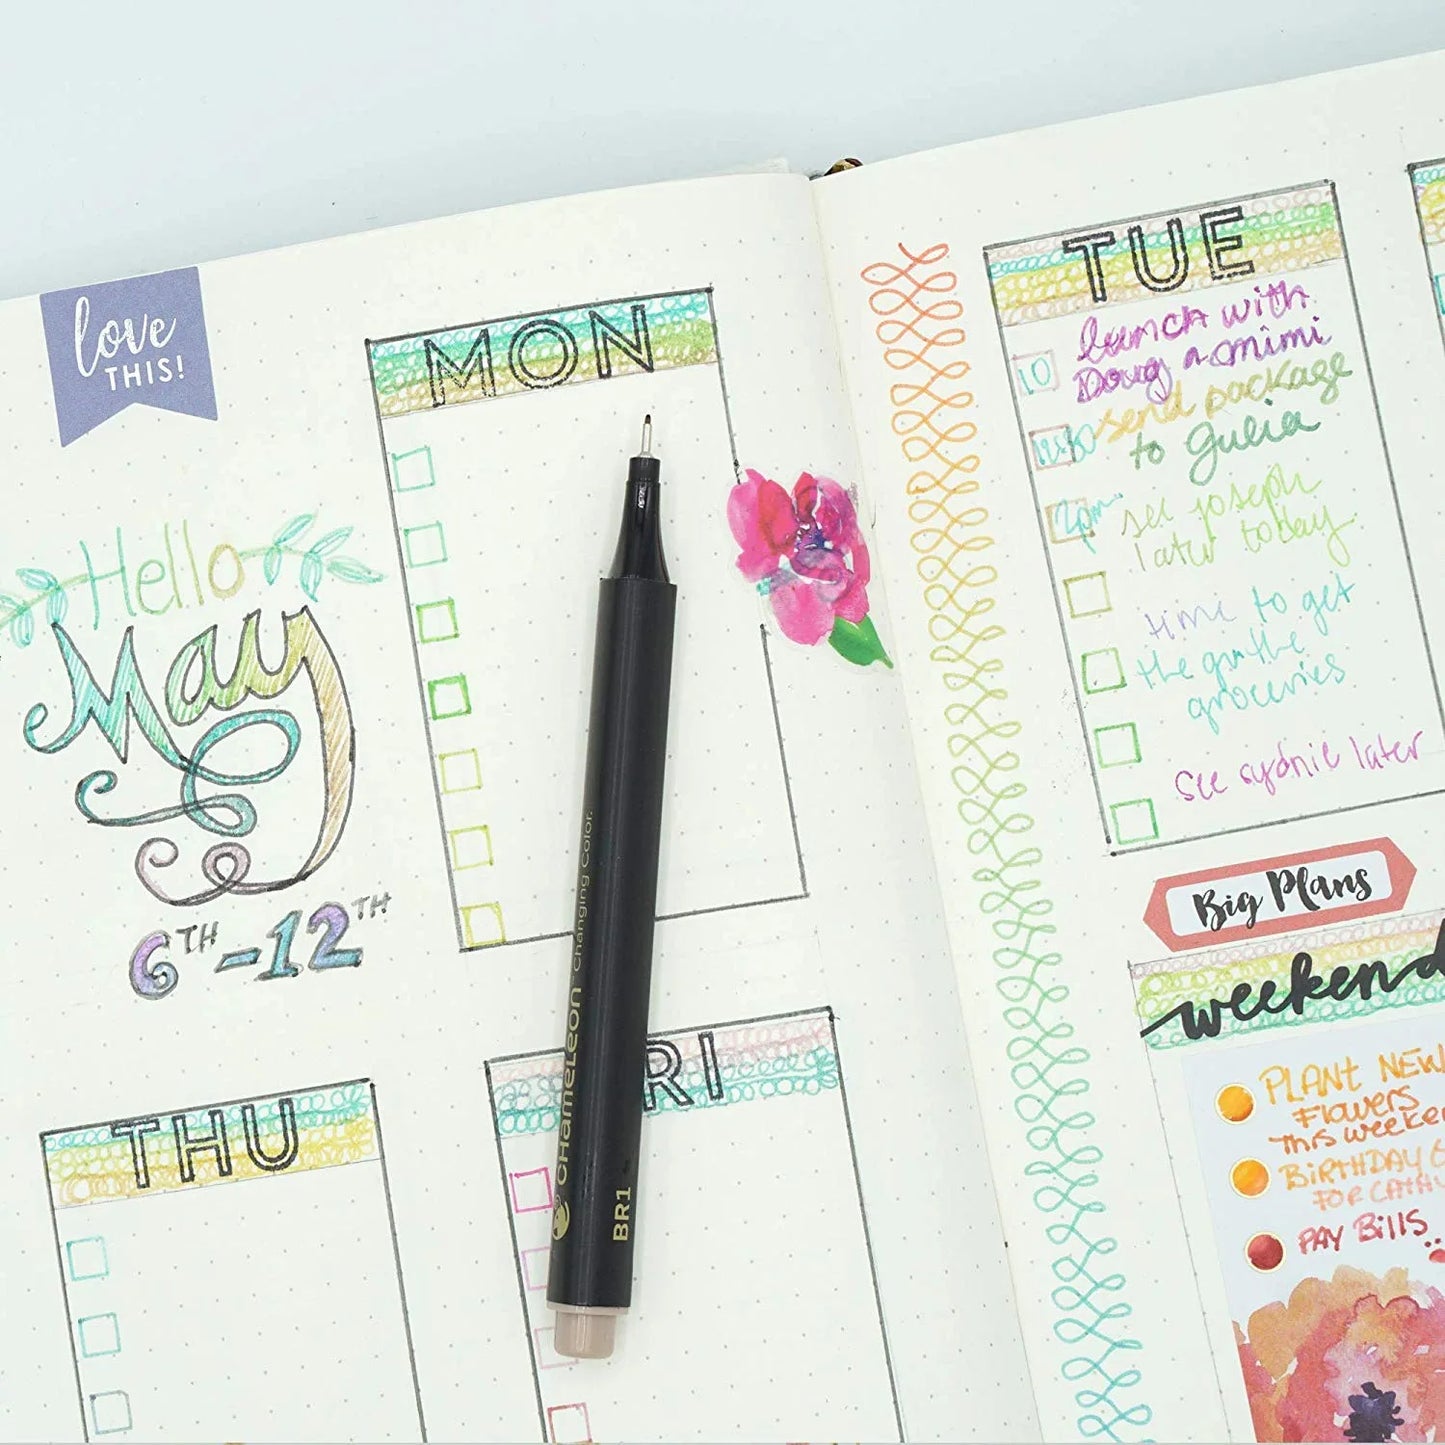 love
THIS!
Hello
May
6TH-12TH
MON
THU
RI
CHAMELEON Changing Color.
BR1
TUE
10
lunch with
Doug n mimi
send package
to Gulia
2pm
see joseph
later today
time to get
the
groceries
See sydnie later
Big Plans
weekend
PLANT NEW
Flowers
THIS WEEKEN
BIRTHDAY
FOR CATHY
PAY BILLS